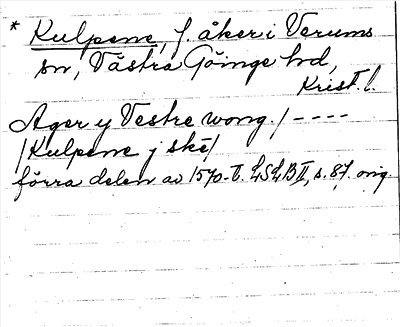 * Kulpene, f. åker i Verums
sn, Västra Göinge hd,
Krist. l.
Ager y Vestre wong. / ----
/ Kulpene j ske /
förra delen av 1570-t. LSLB II, s. 87. orig.